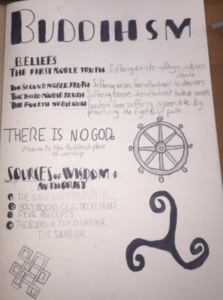 BUDDIHSM
BELIEFS
THE FIRST NOBLE TRUTH Suffering exists - old age, sickness
death
THE SECOND NOBLE TRUTH Suffering arises from attachment to desires
THE THIRD NOBLE TRUTH Suffering ceases when attachment to desire ceases
THE FOURTH NOBLE Freedom from suffering is possible by
practising the Eightfold path
THERE IS NO GOD
Vihara is the Buddhist place
of worship
SOURCES OF WISDOM &
AUTHORITY
THE
HOLY BOOKS
FIVE PRECEPTS
THE BUDDHA THE DHARMA
THE SANGHA